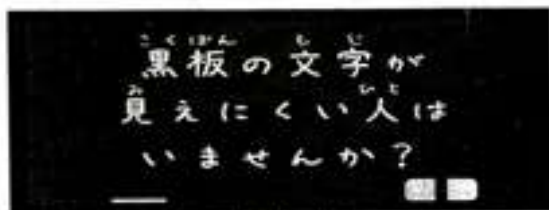 黒板の文字が
見えにくい人は
いませんか?